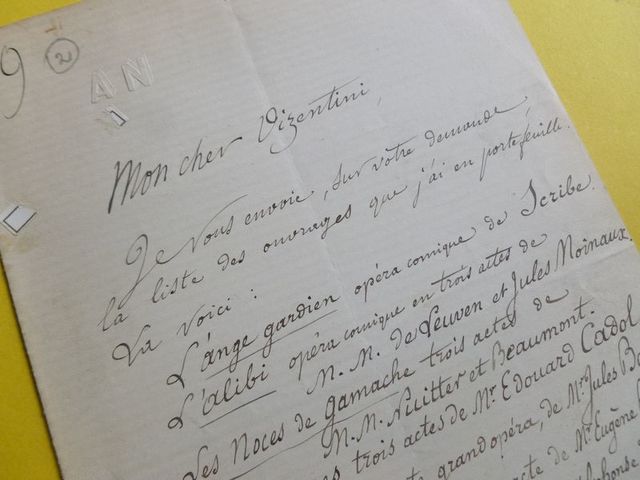 9 2
AN
Mon cher Vizentini,
Je vous envoie, sur votre demande
la liste des ouvrages que j'ai en portefeuille.
La voici :
L'ange gardien opéra comique de Scribe.
L'alibi opéra comique en trois actes de
M. M. de Leuven et Jules Moinaux.
Les Noces de gamache trois actes de
M. M. Nuitter et Beaumont.
trois actes de Mr Edouard Cadol
grand opéra, de Mr Jules
acte de Mr Eugène